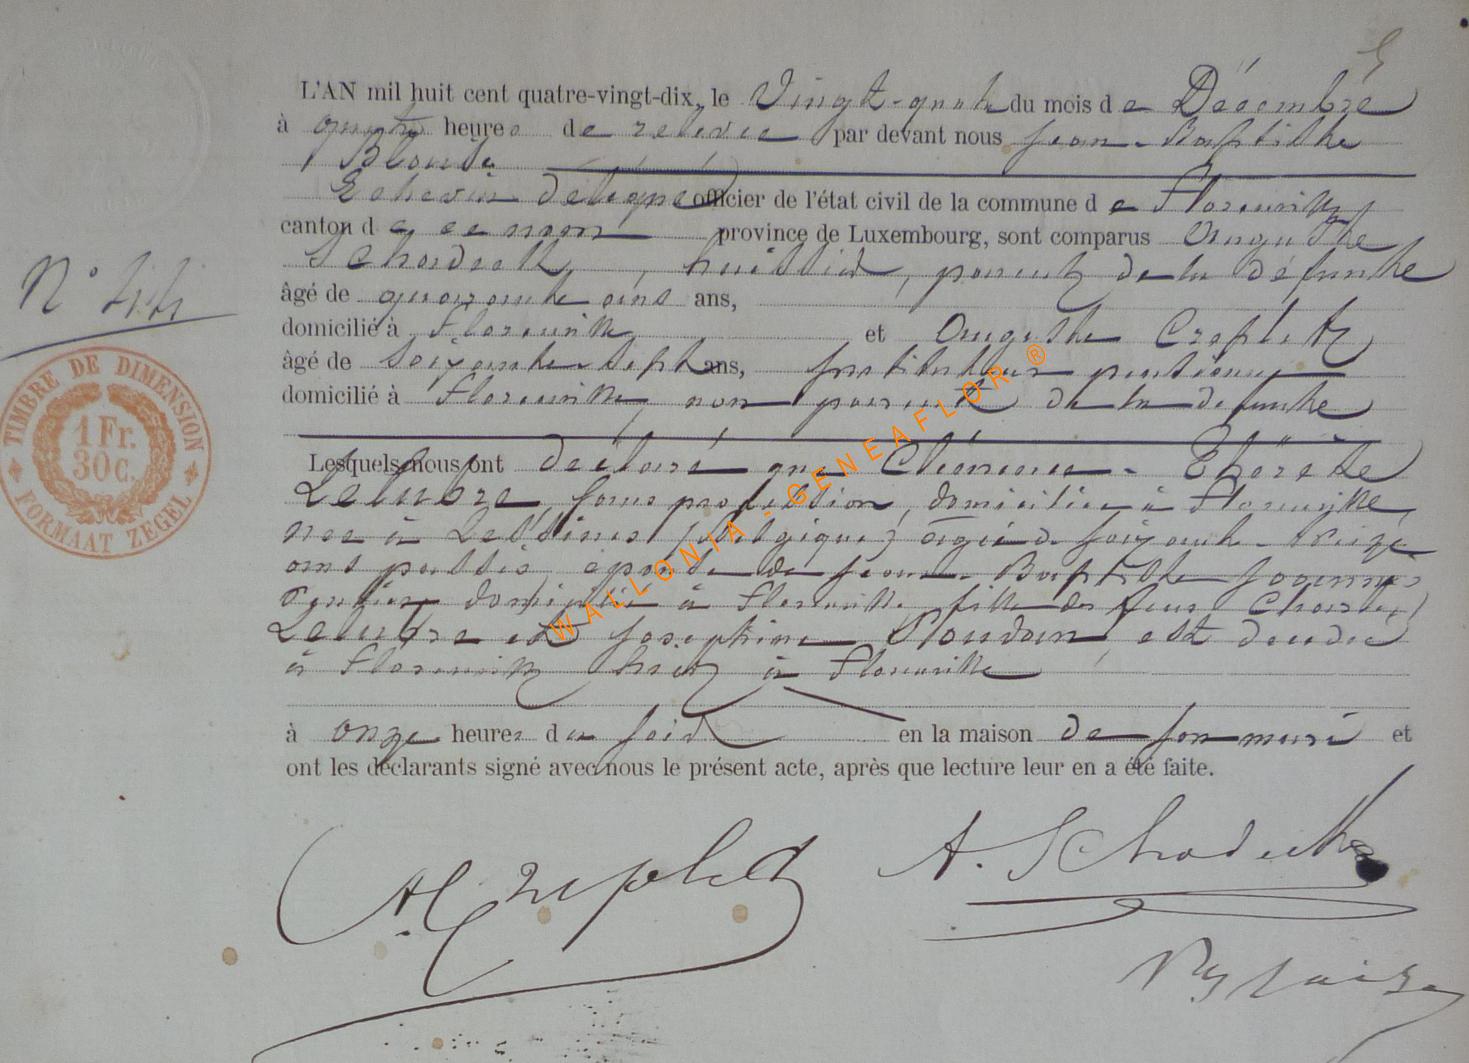 L'AN mil huit cent quatre-vingt-dix, le Vingt-quatre du mois de Décembre
à quatre heures de relevée par devant nous Jean-Baptiste
Echevin délégué officier de l'état civil de la commune de Florenville
canton de province de Luxembourg, sont comparus Auguste
Schodeck, huissier, parent de la défunte
âgé de quarante ans,
domicilié à Florenville et Auguste Craplet
âgé de soixante-sept ans, Instituteur pensionné
domicilié à Florenville, non parent de la défunte
Lesquels nous ont déclaré que Clémence-Thérèse
Lelubre sans profession, domiciliée à Florenville,
née à Lessines (Belgique) âgée de soixante-treize
ans passés, épouse de Jean-Baptiste
rentier domicilié à Florenville, fille de feus Charles
Lelubre et Joséphine Ploudain, est décédée
à Florenville hier à Florenville
à onze heures du soir en la maison de son mari et
ont les déclarants signé avec nous le présent acte, après que lecture leur en a été faite.
N° 44
TIMBRE DE DIMENSION
1 Fr.
30 C.
FORMAAT ZEGEL
WALLONIA-GENEAFLOR®
A. Craplet
A. Schodeck